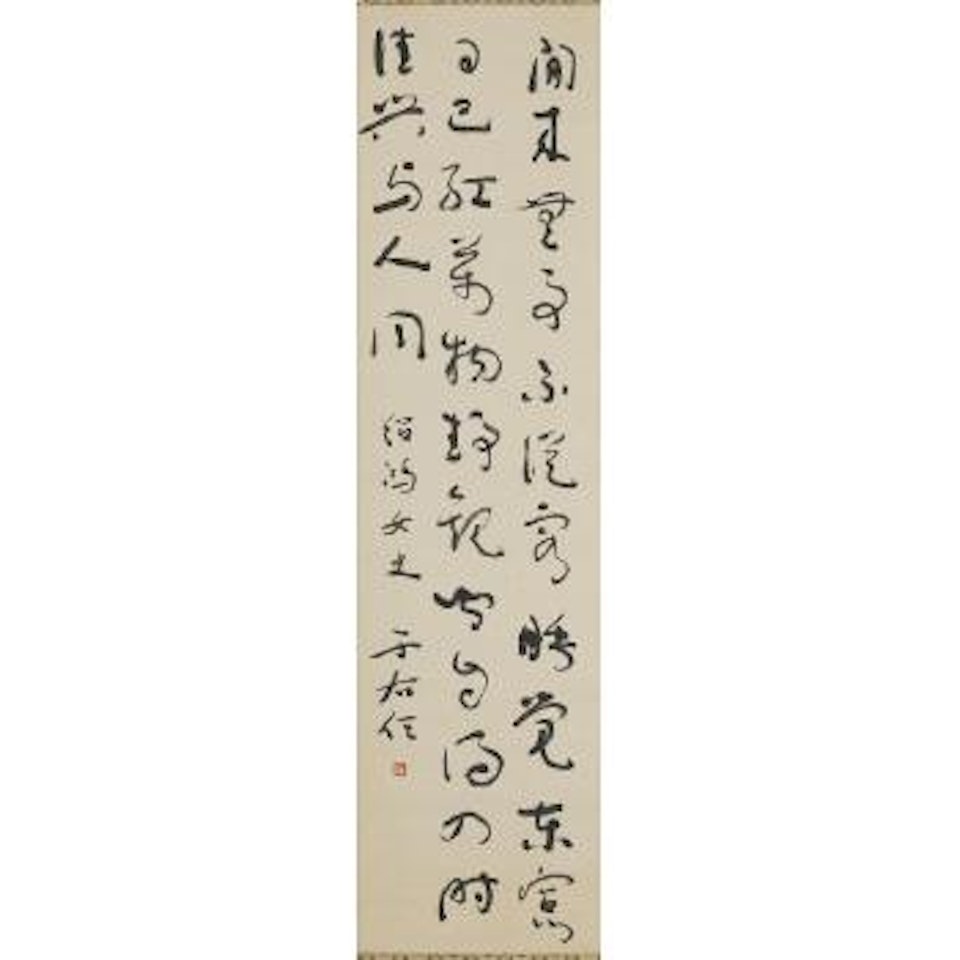 閒來無事不從容睡覺東窗
日已紅萬物靜觀皆自得四時
佳興與人同 紹鴻女士 于右任